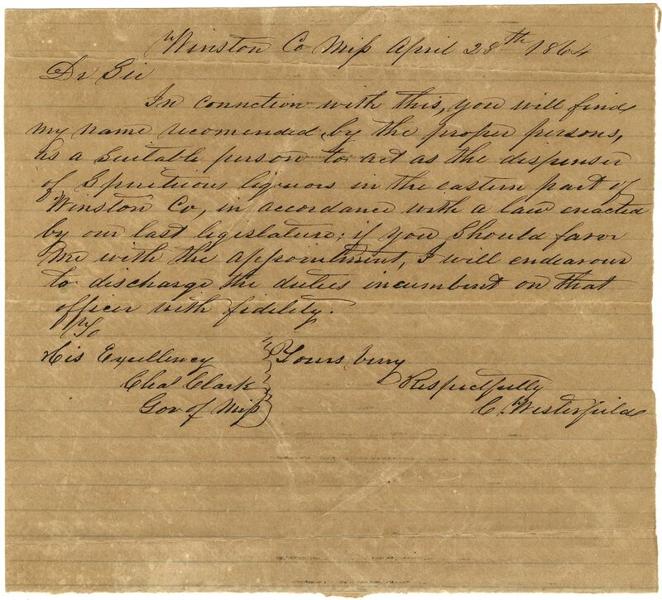 Winston Co Miss April 28th 1864
Dr Sir
In connction with this, you will find
my name recomended by the proper persons,
as a suitable person to act as the dispenser
of Spirituous liquors in the eastern part of
Winston Co, in accordance with a law enacted
by our last legislature; if you should favor
me with the appointment, I will endeavour
to discharge the duties incumbent on that
officer with fidelity.
To
His Excellency
Chas Clark
Gov of Miss
Yours very
Respectfully
C. Westerfield